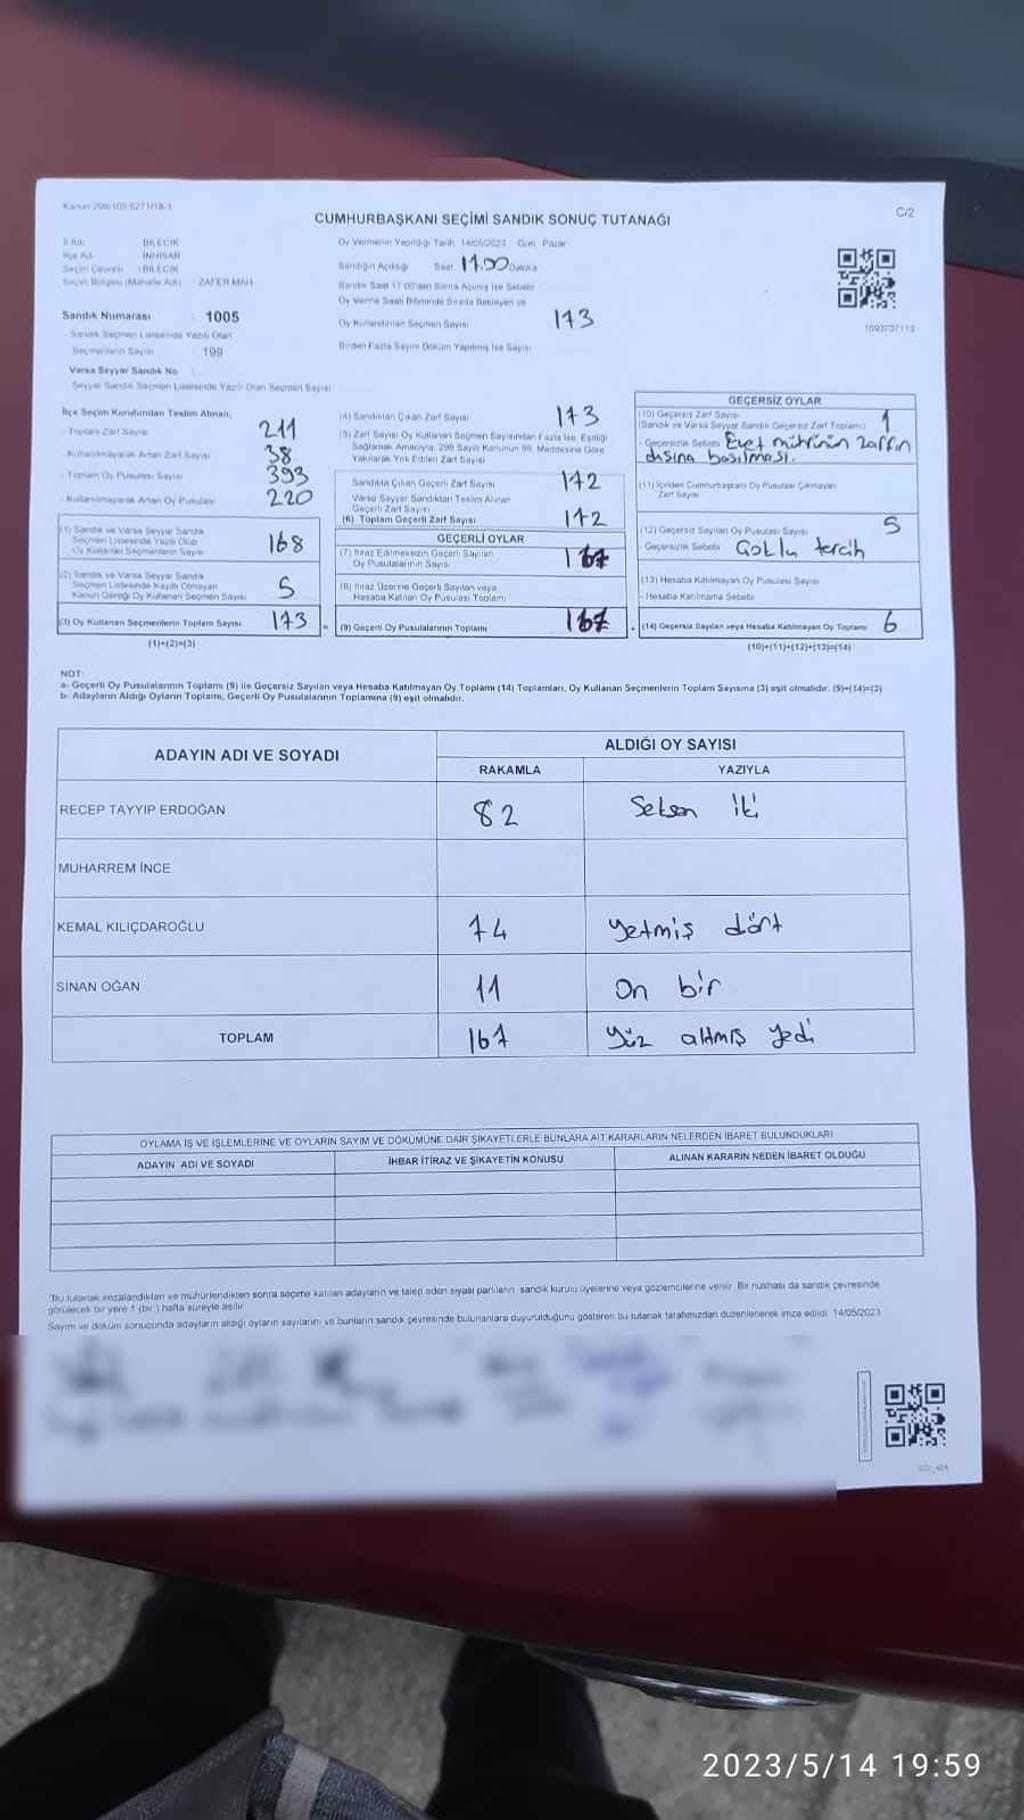 CUMHURBAŞKANI SEÇİMİ SANDIK SONUÇ TUTANAĞI
C/2
İl Adı BİLECİK
İlçe Adı İNHİSAR
Seçim Çevresi BİLECİK
Seçim Bölgesi (Mahalle Adı) ZAFER MAH
Oy Vermenin Yapıldığı Tarih 14/05/2023 Gün Pazar
Sandığın Açıldığı Saat 17.00 Dakika
Sandık Saat 17.00'den Sonra Açılmış İse Sebebi
Oy Kullandırılan Seçmen Sayısı 173
Birden Fazla Sayım Döküm Yapılmış İse Sayısı
Sandık Numarası 1005
- Sandık Seçmen Listesinde Yazılı Olan
Seçmenlerin Sayısı 199
Varsa Seyyar Sandık No
Seyyar Sandık Seçmen Listesinde Yazılı Olan Seçmen Sayısı
İlçe Seçim Kurulundan Teslim Alınan;
- Toplam Zarf Sayısı 211
- Kullanılmayarak Artan Zarf Sayısı 38
- Toplam Oy Pusulası Sayısı 393
- Kullanılmayarak Artan Oy Pusulası 220
(1) Sandık ve Varsa Seyyar Sandık
Seçmen Listesinde Yazılı Olup
Oy Kullanan Seçmenlerin Sayısı 168
(2) Sandık ve Varsa Seyyar Sandık
Seçmen Listesinde Kayıtlı Olmayan
Kanun Gereği Oy Kullanan Seçmen Sayısı 5
(3) Oy Kullanan Seçmenlerin Toplam Sayısı 173
(1)+(2)=(3)
(4) Sandıktan Çıkan Zarf Sayısı 173
(5) Zarf Sayısı Oy Kullanan Seçmen Sayısından Fazla İse, Eşitliği
Sağlamak Amacıyla, 298 Sayılı Kanunun 98. Maddesine Göre
Yakılarak Yok Edilen Zarf Sayısı
Sandıkta Çıkan Geçerli Zarf Sayısı 172
Varsa Seyyar Sandıktan Teslim Alınan
Geçerli Zarf Sayısı
(6) Toplam Geçerli Zarf Sayısı 172
GEÇERLİ OYLAR
(7) İtiraz Edilmeksizin Geçerli Sayılan
Oy Pusulalarının Sayısı 167
(8) İtiraz Üzerine Geçerli Sayılan veya
Hesaba Katılan Oy Pusulası Toplamı
(9) Geçerli Oy Pusulalarının Toplamı 167
GEÇERSİZ OYLAR
(10) Geçersiz Zarf Sayısı
(Sandık ve Varsa Seyyar Sandık Geçersiz Zarf Toplamı) 1
- Geçersizlik Sebebi Evet mührünün zarfın
dışına basılması.
(11) İçinden Cumhurbaşkanı Oy Pusulası Çıkmayan
Zarf Sayısı
(12) Geçersiz Sayılan Oy Pusulası Sayısı 5
- Geçersizlik Sebebi Çoklu tercih
(13) Hesaba Katılmayan Oy Pusulası Sayısı
- Hesaba Katılmama Sebebi
(14) Geçersiz Sayılan veya Hesaba Katılmayan Oy Toplamı 6
(10)+(11)+(12)+(13)=(14)
NOT:
a- Geçerli Oy Pusulalarının Toplamı (9) ile Geçersiz Sayılan veya Hesaba Katılmayan Oy Toplamı (14) Toplamları, Oy Kullanan Seçmenlerin Toplam Sayısına (3) eşit olmalıdır. (9)+(14)=(3)
b- Adayların Aldığı Oyların Toplamı, Geçerli Oy Pusulalarının Toplamına (9) eşit olmalıdır.
ADAYIN ADI VE SOYADI
ALDIĞI OY SAYISI
RAKAMLA YAZIYLA
RECEP TAYYİP ERDOĞAN 82 Seksen iki
MUHARREM İNCE
KEMAL KILIÇDAROĞLU 74 Yetmiş dört
SİNAN OĞAN 11 On bir
TOPLAM 167 Yüz altmış yedi
OYLAMA İŞ VE İŞLEMLERİNE VE OYLARIN SAYIM VE DÖKÜMÜNE DAİR ŞİKAYETLERLE BUNLARA AİT KARARLARIN NELERDEN İBARET BULUNDUKLARI
ADAYIN ADI VE SOYADI İHBAR İTİRAZ VE ŞİKAYETİN KONUSU ALINAN KARARIN NEDEN İBARET OLDUĞU
"Bu tutanak imzalandıktan ve mühürlendikten sonra seçime katılan adayların ve talep eden siyasi partilerin sandık kurulu üyelerine veya gözlemcilerine verilir. Bir nüshası da sandık çevresinde
görülecek bir yere 1 (bir) hafta süreyle asılır.
Sayım ve döküm sonucunda adayların aldığı oyların sayılarını ve bunların sandık çevresinde bulunanlara duyurulduğunu gösteren bu tutanak tarafımızdan düzenlenerek imza edildi. 14/05/2023
2023/5/14 19:59